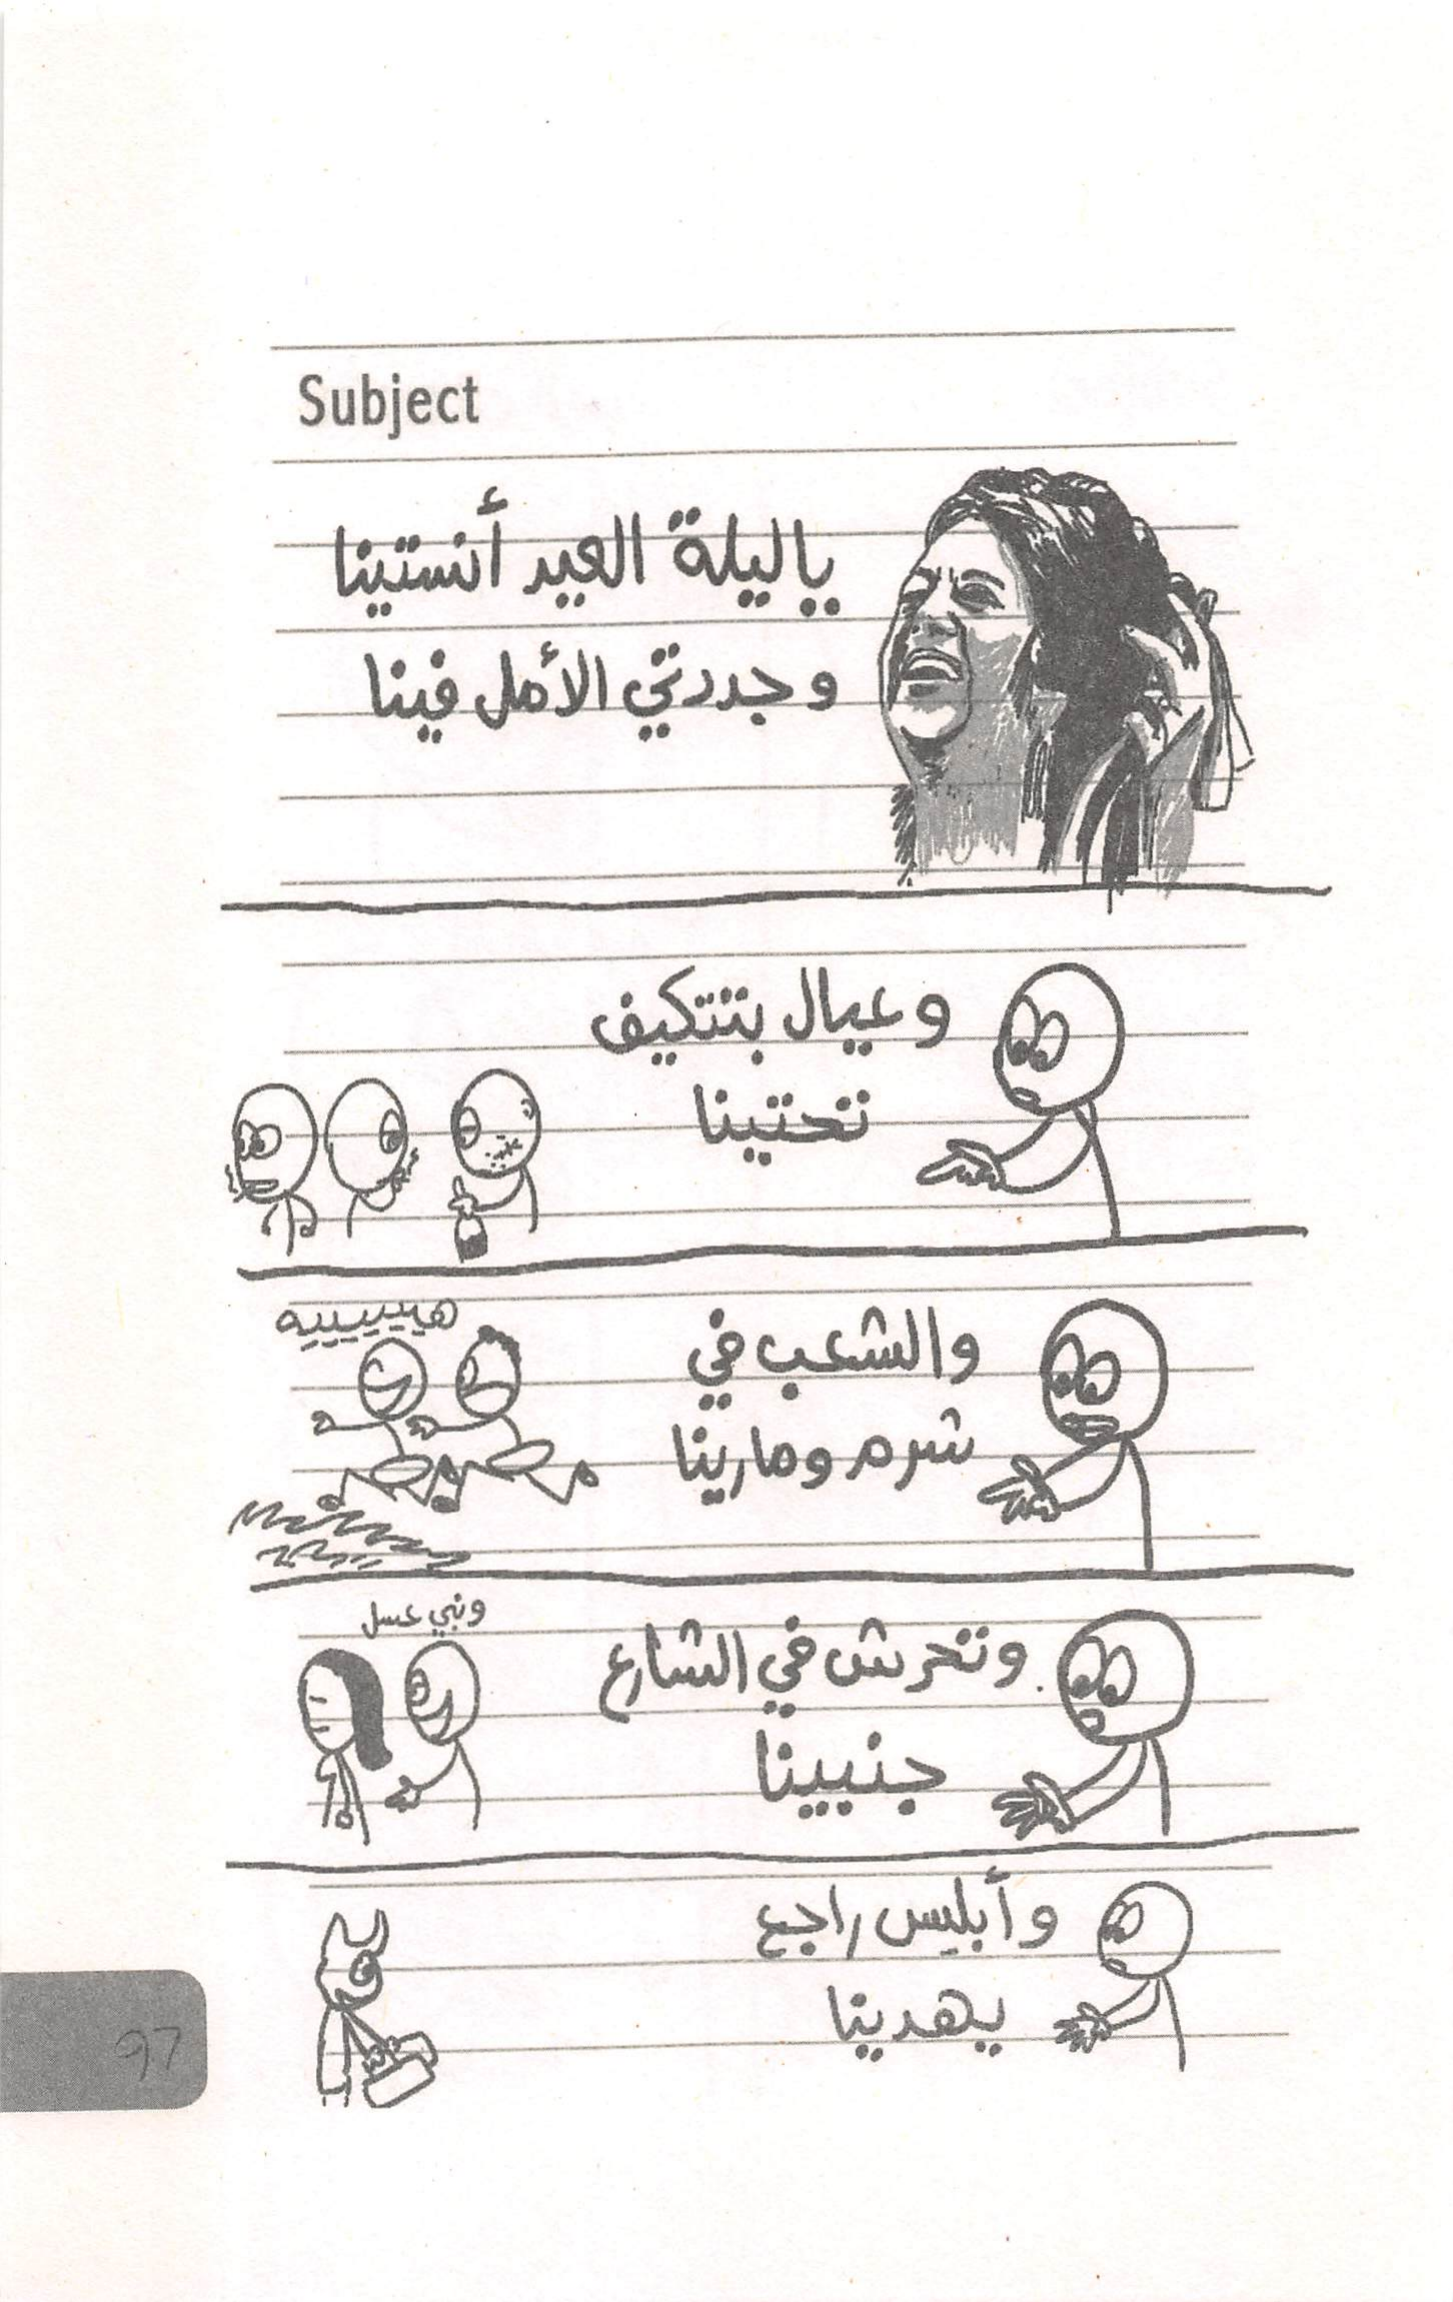 Subject
يا ليلة العيد أنستينا
وجددتي الأمل فينا
وعيال بتتكيف
تحتينا
هيييييييه
والشعب في
شرم ومارينا
ونبي عسل
وتحرش في الشارع
جنبينا
وأبليس راجع
يهدينا
97